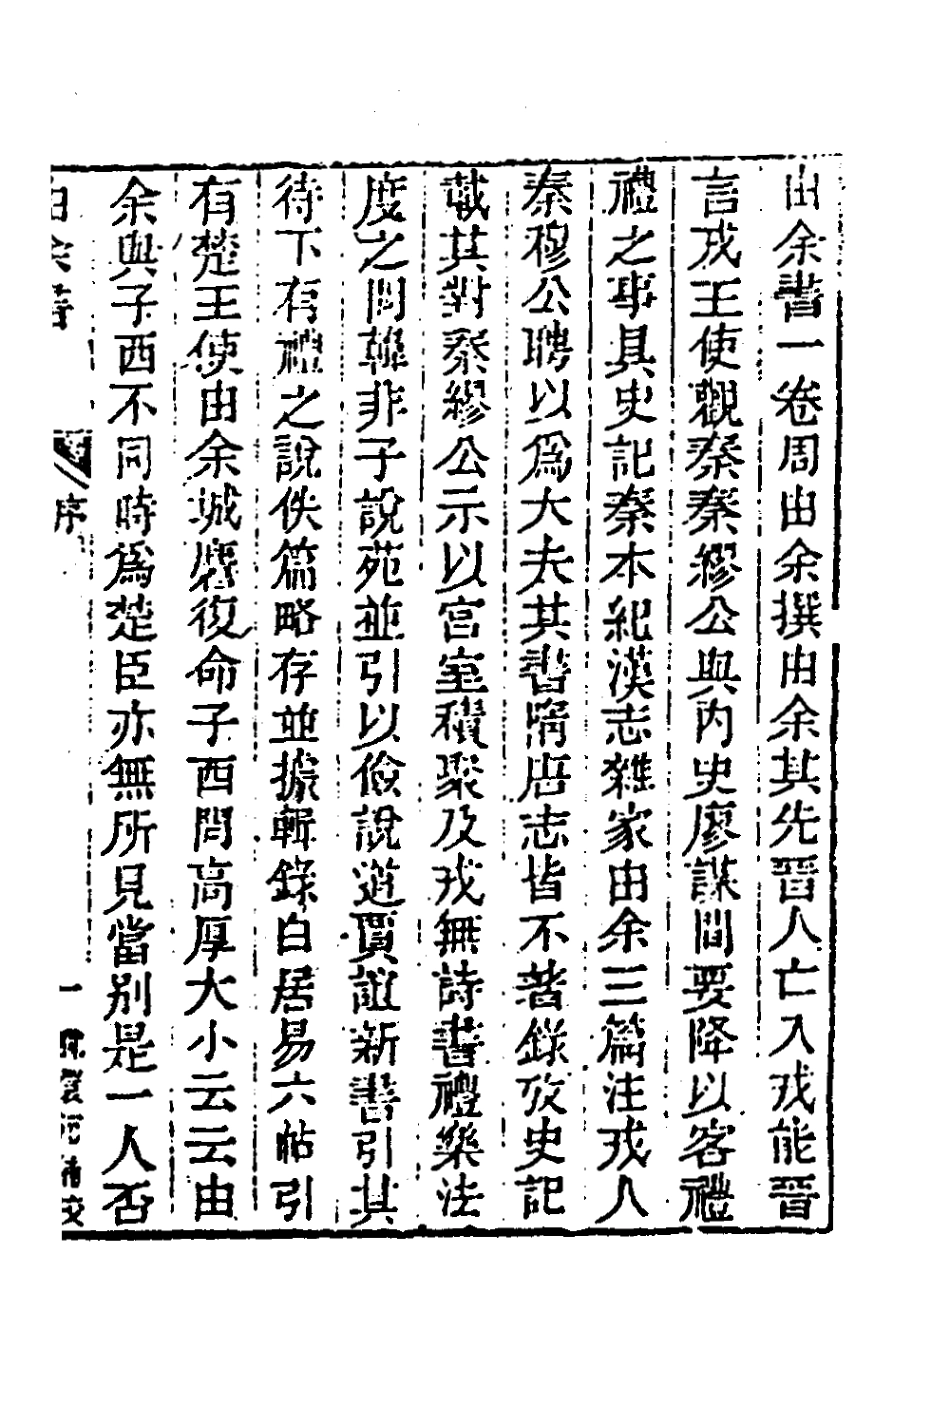 由余書一卷周由余撰由余其先晋人亡入戎能晋
言戎王使觀秦秦繆公與內史廖謀間要降以客禮
禮之事具史記秦本紀漢志雜家由余三篇注戎人
秦穆公聘以爲大夫其書隋唐志皆不著錄攷史記
載其對秦繆公示以宮室積聚及戎無詩書禮樂法
度之問韓非子說苑並引以儉說道賈誼新書引其
待下有禮之說佚篇略存並據輯錄白居易六帖引
有楚王使由余城麇復命子西問高厚大小云云由
余與子西不同時爲楚臣亦無所見當別是一人否
由余書
序
一